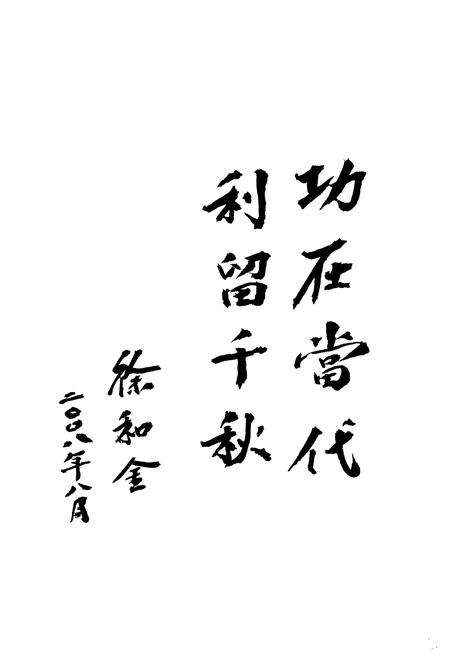 功在當代
利留千秋
徐和金
二〇〇八年八月